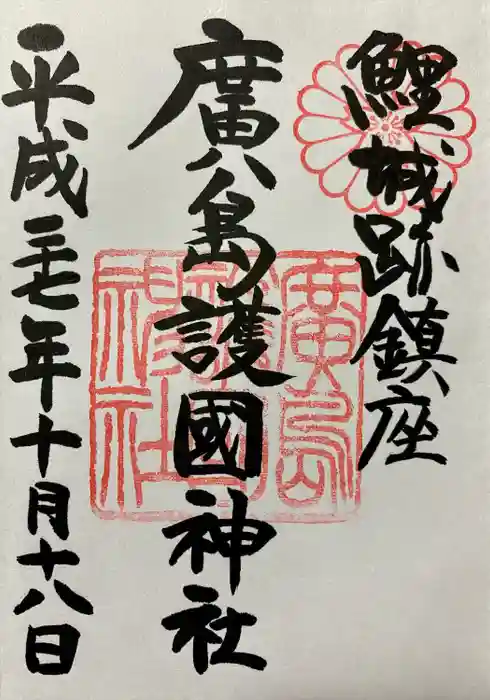 鯉城跡鎮座
廣島護國神社
平成二十七年十月十八日
廣島
護國
神社